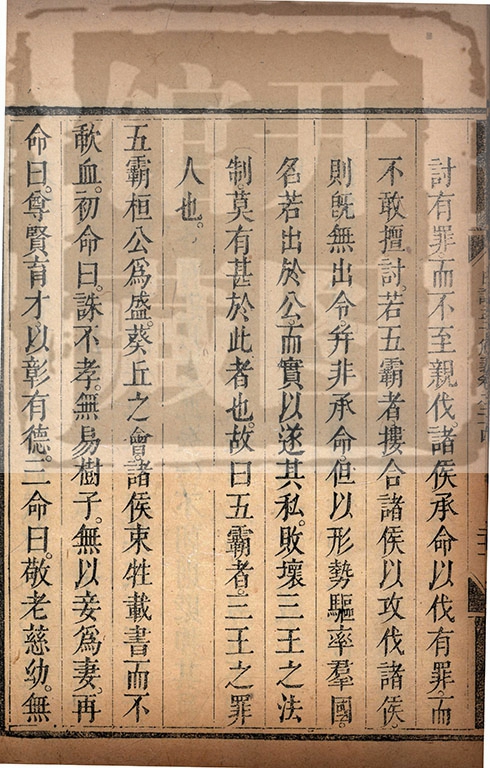 討有罪。而不至親伐。諸侯承命以伐有罪。而
不敢擅討。若五霸者摟合諸侯以攻伐諸侯。
則旣無出令。并非承命。但以形勢驅率羣國。
名若出於公。而實以遂其私。敗壞三王之法
制。莫有甚於此者也。故曰五霸者。三王之罪
人也。
五霸桓公爲盛。葵丘之會。諸侯束牲載書而不
歃血。初命曰。誅不孝。無易樹子。無以妾爲妻。再
命曰。尊賢育才。以彰有德。三命曰。敬老慈幼。無